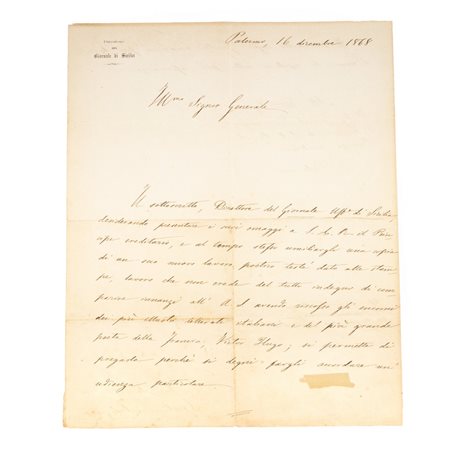 Giornale di Sicilia
Palermo, 16 dicembre 1868
Ill.mo Signor Generale
Il sottoscritto, Direttore del Giornale Uff.e di Sicilia
desiderando presentare i suoi omaggi a S. A. R. il Prin-
cipe ereditario, e al tempo stesso umiliargli una copia
di un suo nuovo lavoro poetico testè dato alle stam-
pe, lavoro che non crede del tutto indegno di com-
parire innanzi all' A. S. avendo riscosso gli encomi
dei più illustri letterati italiani e del più grande
poeta della Francia, Victor Hugo; si permette di
pregarla perchè si degni fargli accordare un'
udienza particolare.